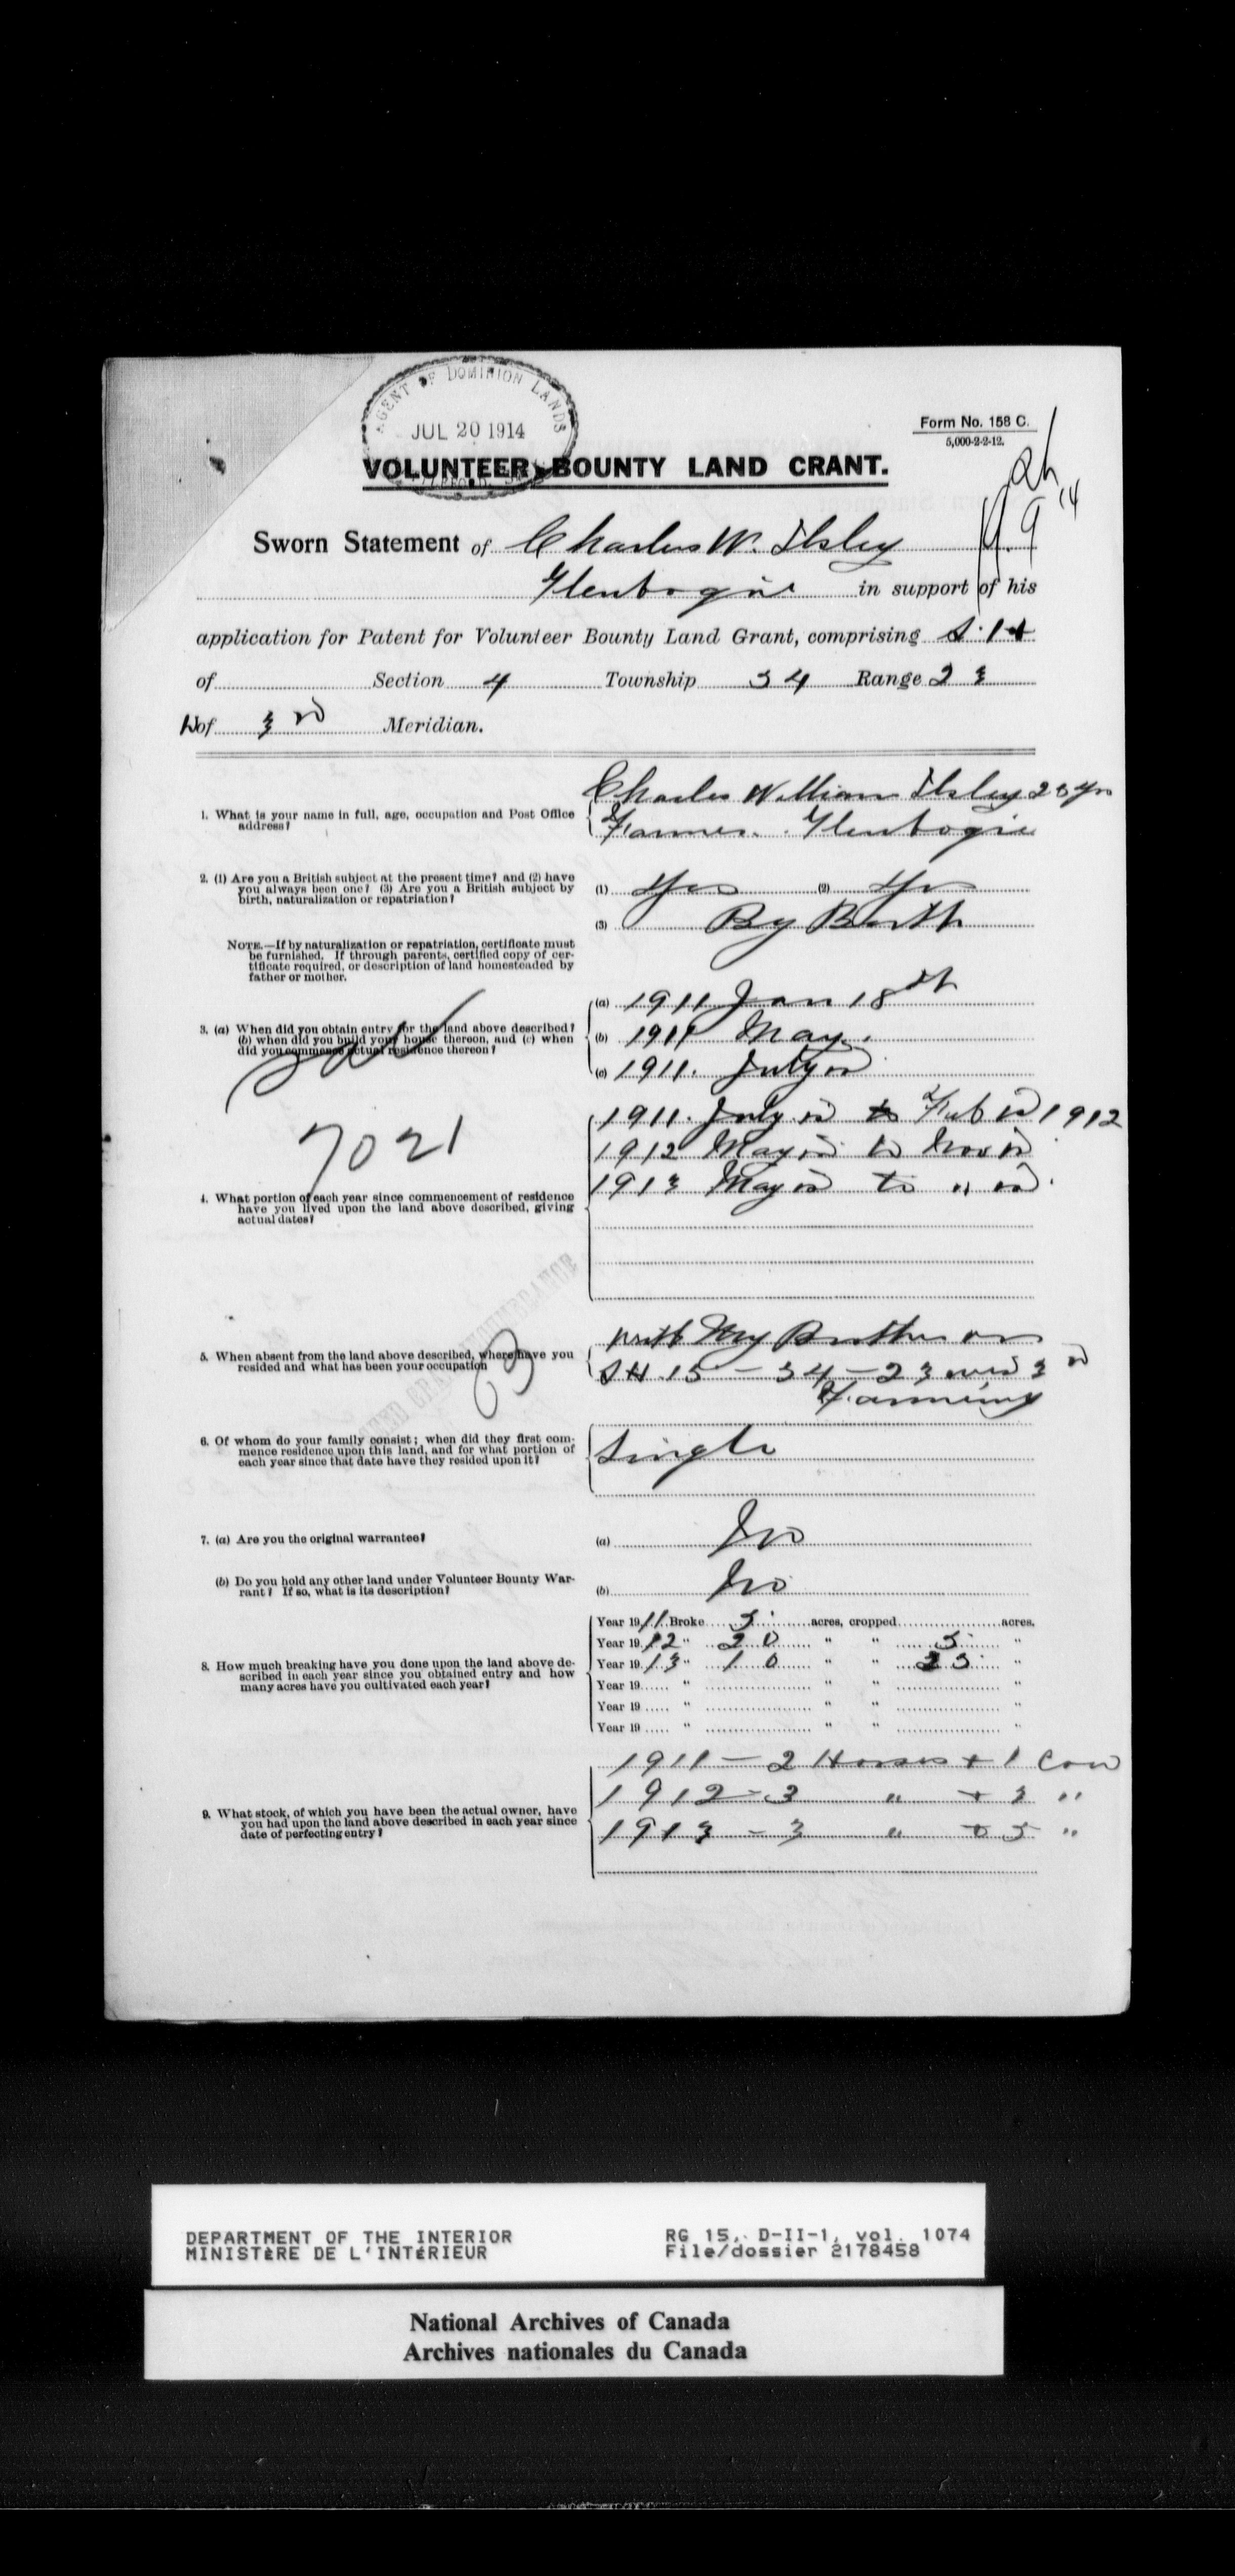 AGENT OF DOMINION LANDS
JUL 20 1914
Form No. 158 C.
5,000-2-2-12.
VOLUNTEER BOUNTY LAND GRANT.
Sworn Statement of Charles W. Ilsley
Glenbogie in support of his
application for Patent for Volunteer Bounty Land Grant, comprising
of Section 4 Township 34 Range 23
W of 3rd Meridian.
Charles William Ilsley 23 yrs
1. What is your name in full, age, occupation and Post Office
address?
Farmer. Glenbogie
2. (1) Are you a British subject at the present time? and (2) have
you always been one? (3) Are you a British subject by
birth, naturalization or repatriation?
(1) Yes (2) Yes
(3) By Birth
NOTE.—If by naturalization or repatriation, certificate must
be furnished. If through parents, certified copy of cer-
tificate required, or description of land homesteaded by
father or mother.
3. (a) When did you obtain entry for the land above described?
(b) when did you build your house thereon, and (c) when
did you commence actual residence thereon?
(a) 1911 Jan 18th
(b) 1911 May.
(c) 1911. July
7021
1911. July to Feb 1912
1912 May to Nov
1913 May to "
4. What portion of each year since commencement of residence
have you lived upon the land above described, giving
actual dates?
5. When absent from the land above described, where have you
resided and what has been your occupation
with My Brother on
15 - 34 - 23 W 3rd
Farming
6. Of whom do your family consist; when did they first com-
mence residence upon this land, and for what portion of
each year since that date have they resided upon it?
Single
7. (a) Are you the original warrantee?
(a) No
(b) Do you hold any other land under Volunteer Bounty War-
rant? If so, what is its description?
(b) No
8. How much breaking have you done upon the land above de-
scribed in each year since you obtained entry and how
many acres have you cultivated each year?
Year 1911 Broke 5 acres, cropped acres.
Year 1912 " 20 " " 5 "
Year 1913 " 10 " " 25 "
Year 19 " " " "
Year 19 " " " "
Year 19 " " " "
9. What stock, of which you have been the actual owner, have
you had upon the land above described in each year since
date of perfecting entry?
1911 - 2 Horses + 1 Cow
1912 - 3 " + 3 "
1913 - 3 " + 5 "
DEPARTMENT OF THE INTERIOR
MINISTÈRE DE L'INTÉRIEUR
RG 15, D-II-1, vol. 1074
File/dossier 2178458
National Archives of Canada
Archives nationales du Canada